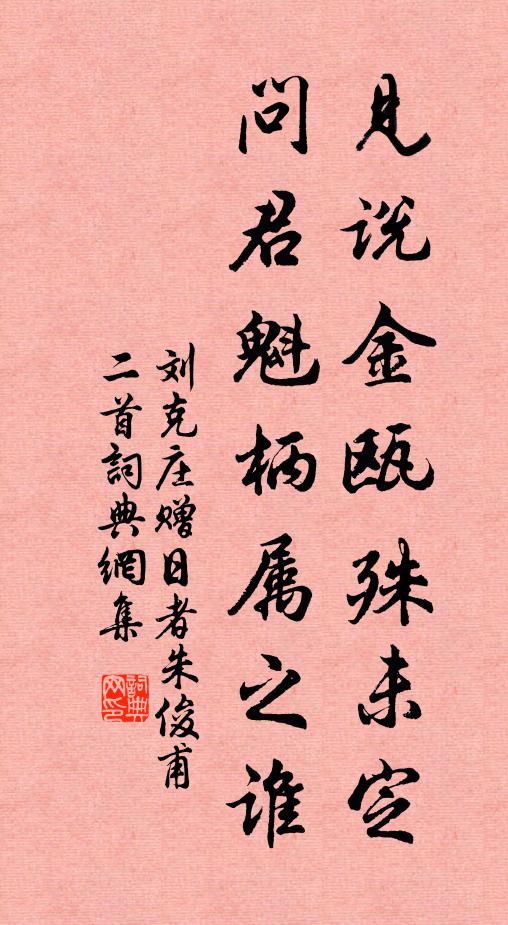 见说金瓯殊未定
问君魁柄属之谁
刘克庄赠日者朱俊甫
二首詞典網集
詞典
网印